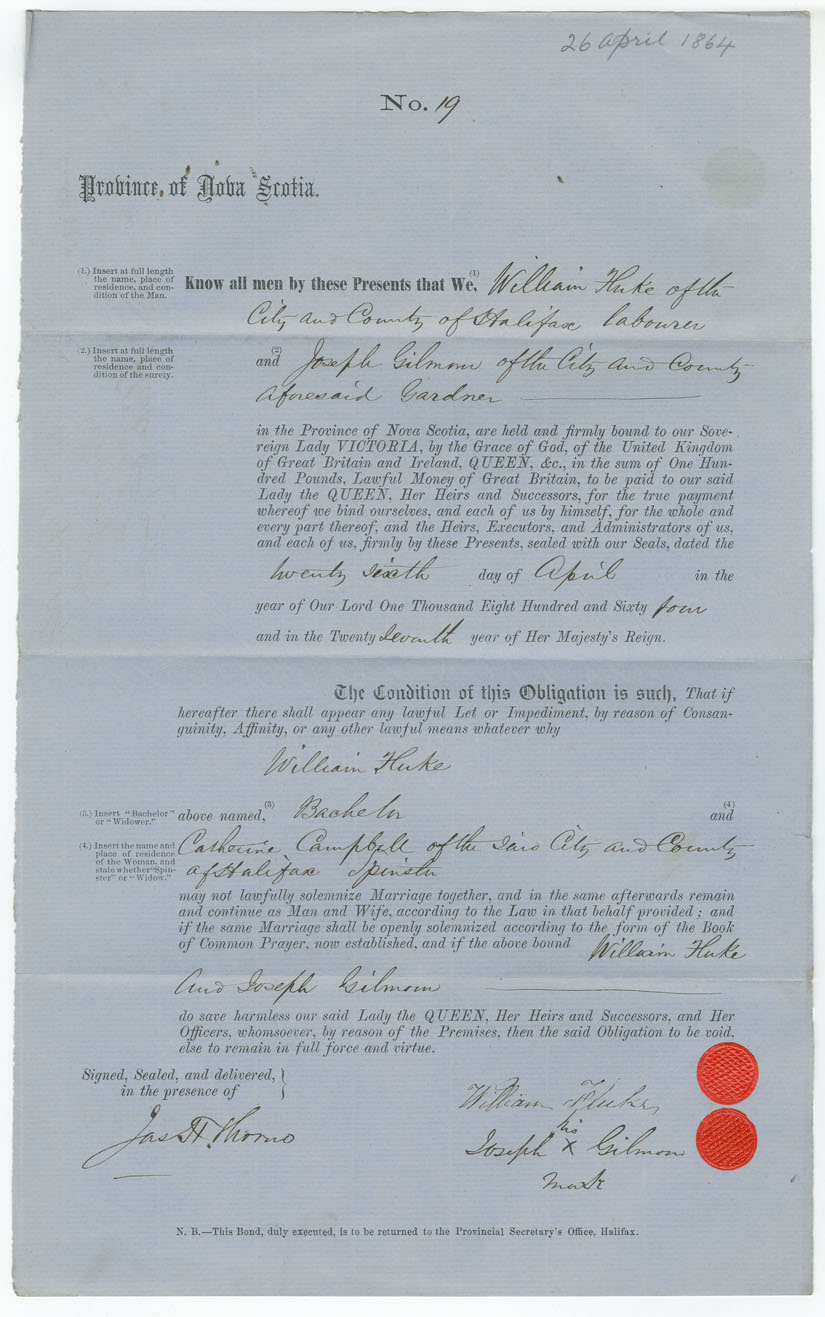 26 April 1864
No. 19
Province of Nova Scotia.
(1.) Insert at full length
the name, place of
residence, and con-
dition of the Man.
Know all men by these Presents that We, (1) William Fluke of the
City and County of Halifax labourer
(2.) Insert at full length
the name, place of
residence and con-
dition of the surety.
and (2) Joseph Gilmour of the City and County
aforesaid Gardner
in the Province of Nova Scotia, are held and firmly bound to our Sove-
reign Lady VICTORIA, by the Grace of God, of the United Kingdom
of Great Britain and Ireland, QUEEN, &c., in the sum of One Hun-
dred Pounds, Lawful Money of Great Britain, to be paid to our said
Lady the QUEEN, Her Heirs and Successors, for the true payment
whereof we bind ourselves, and each of us by himself, for the whole and
every part thereof, and the Heirs, Executors, and Administrators of us,
and each of us, firmly by these Presents, sealed with our Seals, dated the
twenty sixth day of April in the
year of Our Lord One Thousand Eight Hundred and Sixty four
and in the Twenty Seventh year of Her Majesty's Reign.
The Condition of this Obligation is such, That if
hereafter there shall appear any lawful Let or Impediment, by reason of Consan-
guinity, Affinity, or any other lawful means whatever why
William Fluke
(3.) Insert "Bachelor"
or "Widower."
above named, (3) Bachelor (4) and
(4.) Insert the name and
place of residence
of the Woman, and
state whether "Spin-
ster" or "Widow."
Catherine Campbell of the said City and County
of Halifax Spinster
may not lawfully solemnize Marriage together, and in the same afterwards remain
and continue as Man and Wife, according to the Law in that behalf provided; and
if the same Marriage shall be openly solemnized according to the form of the Book
of Common Prayer, now established, and if the above bound William Fluke
And Joseph Gilmour
do save harmless our said Lady the QUEEN, Her Heirs and Successors, and Her
Officers, whomsoever, by reason of the Premises, then the said Obligation to be void,
else to remain in full force and virtue.
Signed, Sealed, and delivered,
in the presence of
Jas H. Thorne
William Fluke
his
Joseph X Gilmour
mark
N. B.—This Bond, duly executed, is to be returned to the Provincial Secretary's Office, Halifax.